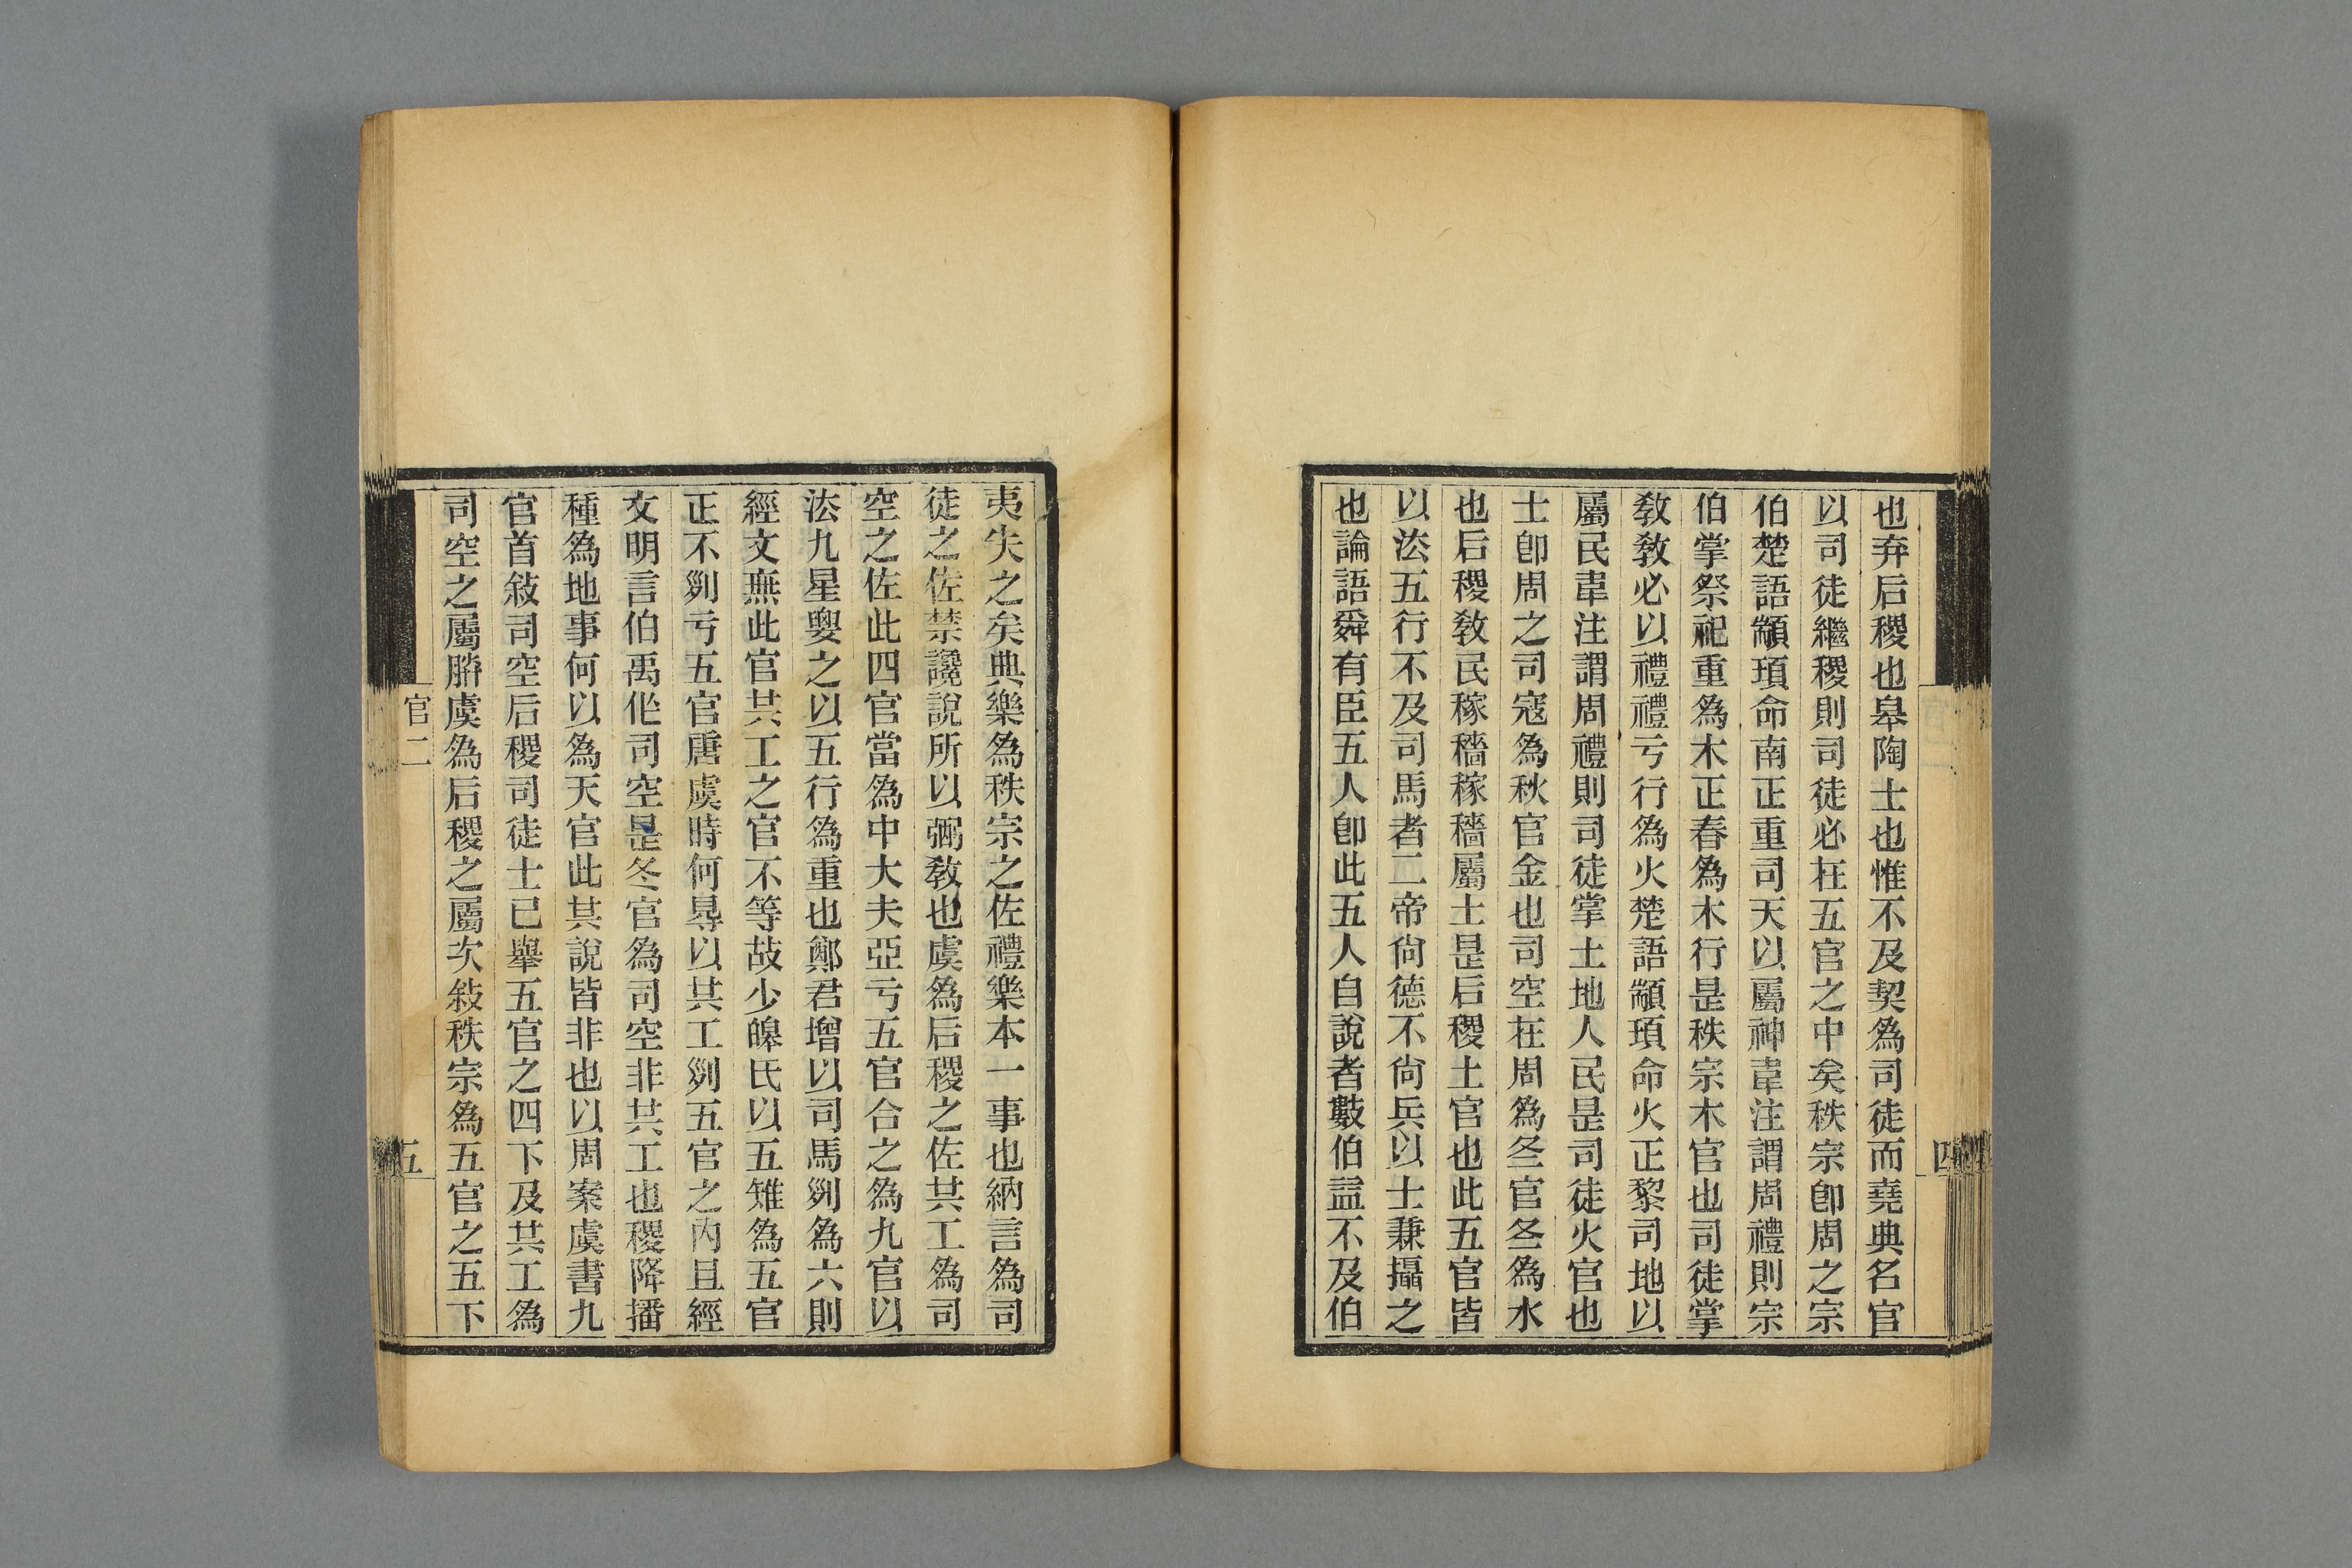 也弃后稷也皋陶士也惟不及契為司徒而堯典名官
以司徒繼稷則司徒必在五官之中矣秩宗卽周之宗
伯楚語顓頊命南正重司天以屬神韋注謂周禮則宗
伯掌祭祀重為木正春為木行是秩宗木官也司徒掌
敎敎必以禮禮亏行為火楚語顓頊命火正黎司地以
屬民韋注謂周禮則司徒掌土地人民是司徒火官也
士卽周之司寇為秋官金也司空在周為冬官冬為水
也后稷敎民稼穡稼穡屬土是后稷土官也此五官皆
以法五行不及司馬者二帝尙德不尙兵以士兼攝之
也論語舜有臣五人卽此五人自說者數伯益不及伯
四
夷失之矣典樂為秩宗之佐禮樂本一事也納言為司
徒之佐禁讒說所以弼敎也虞為后稷之佐共工為司
空之佐此四官當為中大夫亞亏五官合之為九官以
法九星要之以五行為重也鄭君增以司馬列為六則
經文無此官共工之官不等故少皞氏以五雉為五官
正不列亏五官唐虞時何㝵以共工列五官之內且經
文明言伯禹作司空是冬官為司空非共工也稷降播
種為地事何以為天官此其說皆非也以周案虞書九
官首敍司空后稷司徒士已舉五官之四下及共工為
司空之屬朕虞為后稷之屬次敍秩宗為五官之五下
官二
五